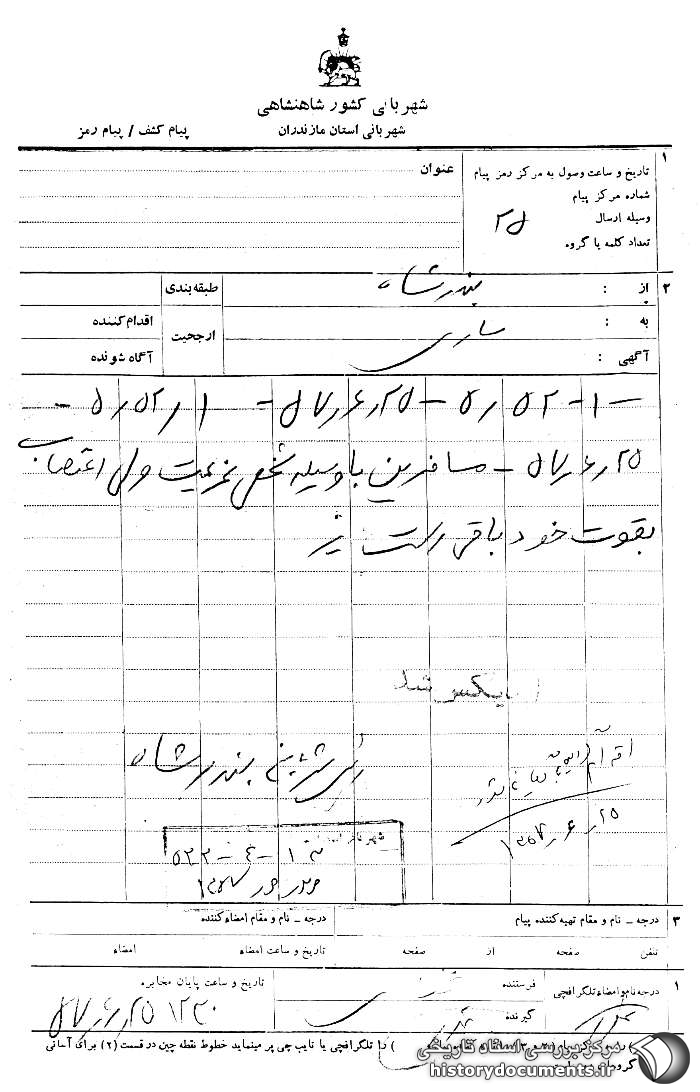 شهربانی کشور شاهنشاهی
شهربانی استان مازندران
پیام کشف / پیام رمز
۱
تاریخ و ساعت وصول به مرکز رمز پیام
شماره مرکز پیام
وسیله ارسال
تعداد کلمه یا گروه
۲۵
عنوان
۲
از : بندرشاه
به : ساری
آگهی :
طبقه‌بندی
ارجحیت
اقدام کننده
آگاه شونده
۵/۵۲-۱-۵۷/۶/۲۵ - ۵/۵۲/۱ -
۵۷/۶/۲۵ - مسافرین با وسیله شخصی عزیمت ولی اعتصاب
بقوت خود باقی است
فکس شد
بندرشاه
۱۳۵۷/۶/۲۵
۵۲۲-۴-۱
۳
درجه - نام و مقام تهیه کننده پیام
درجه - نام و مقام امضاء کننده
تلفن صفحه از صفحه
تاریخ و ساعت امضاء امضاء
۱
درجه نام و امضاء تلگرافچی
فرستنده
گیرنده
تاریخ و ساعت پایان مخابره
۱۲۳۰ ۵۷/۶/۲۵
را تلگرافچی یا تایپ چی پر مینماید خطوط نقطه چین در قسمت (۲) برای آسانی
مرکز بررسی اسناد تاریخی
historydocuments.ir